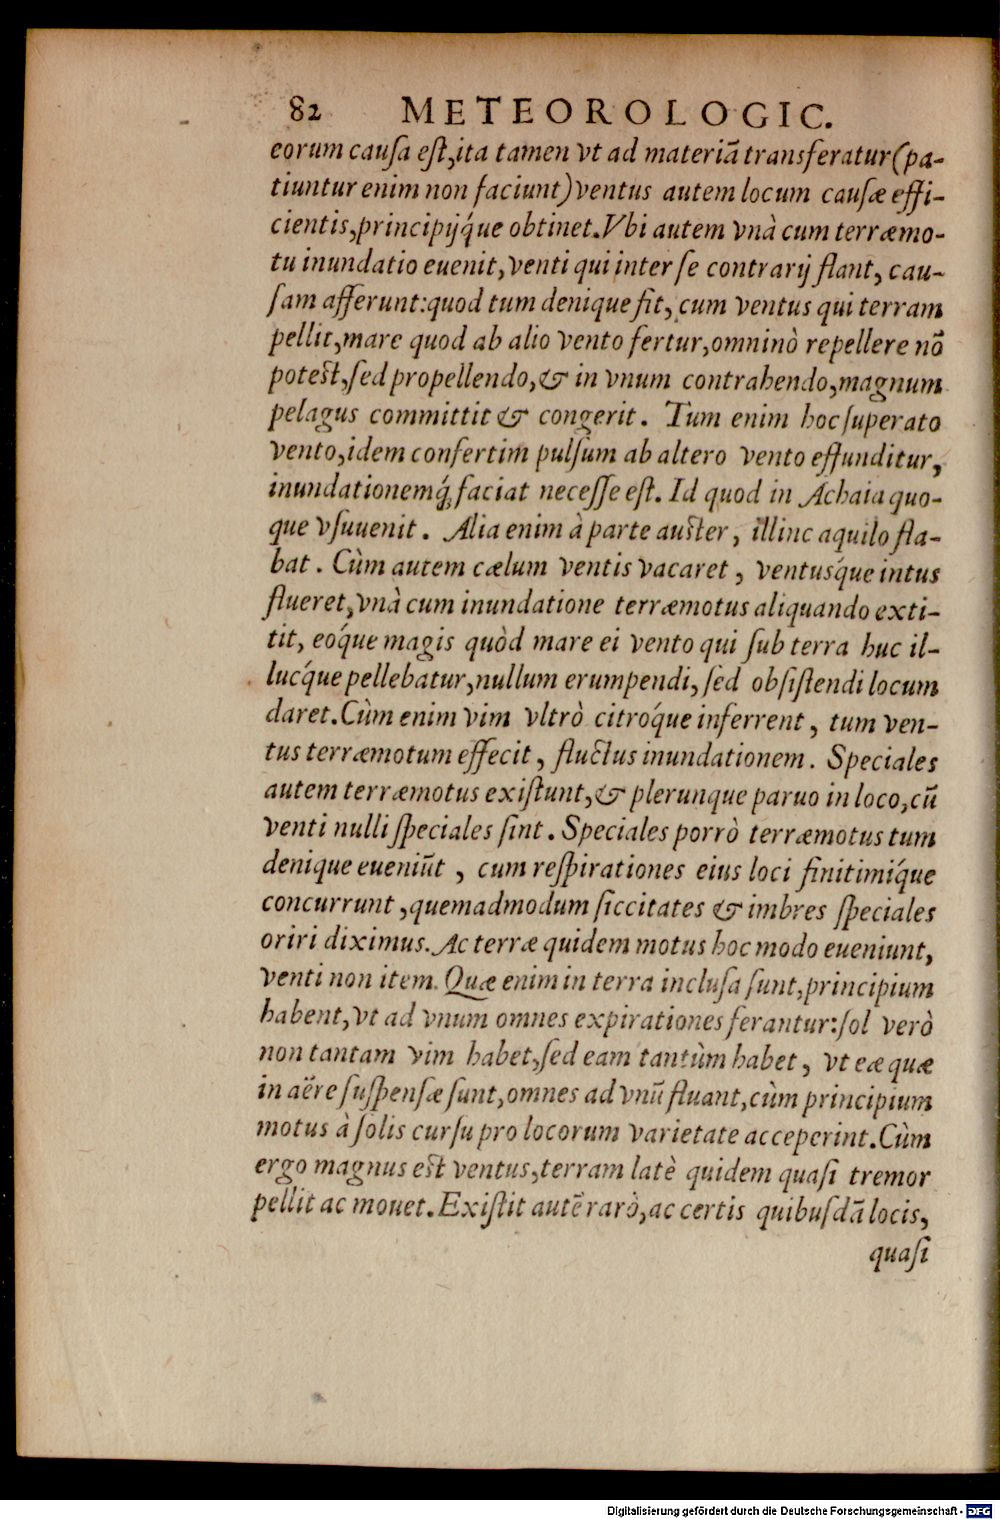 82 METEOROLOGIC.
eorum cauſa eſt, ita tamen vt ad materiã transferatur (pa-
tiuntur enim non faciunt) ventus autem locum cauſæ effi-
cientis, principijq́ue obtinet. Vbi autem vnà cum terræmo-
tu inundatio euenit, venti qui inter ſe contrarij flant, cau-
ſam afferunt: quod tum denique fit, cum ventus qui terram
pellit, mare quod ab alio vento fertur, omninò repellere nõ
poteſt, ſed propellendo, & in vnum contrahendo, magnum
pelagus committit & congerit. Tum enim hoc ſuperato
vento, idem confertim pulſum ab altero vento effunditur,
inundationemq́; faciat neceſſe eſt. Id quod in Achaia quo-
que vſuuenit. Alia enim à parte auſter, illinc aquilo fla-
bat. Cùm autem cælum ventis vacaret, ventusq́ue intus
flueret, vnà cum inundatione terræmotus aliquando exti-
tit, eoq́ue magis quòd mare ei vento qui ſub terra huc il-
lucq́ue pellebatur, nullum erumpendi, ſed obſiſtendi locum
daret. Cùm enim vim vltrò citroq́ue inferrent, tum ven-
tus terræmotum effecit, fluctus inundationem. Speciales
autem terræmotus exiſtunt, & plerunque paruo in loco, cũ
venti nulli ſpeciales ſint. Speciales porrò terræmotus tum
denique eueniũt, cum reſpirationes eius loci finitimiq́ue
concurrunt, quemadmodum ſiccitates & imbres ſpeciales
oriri diximus. Ac terræ quidem motus hoc modo eueniunt,
venti non item. Quæ enim in terra incluſa ſunt, principium
habent, vt ad vnum omnes expirationes ferantur: ſol verò
non tantam vim habet, ſed eam tantùm habet, vt eæ quæ
in aëre ſuſpenſæ ſunt, omnes ad vnũ fluant, cùm principium
motus à ſolis curſu pro locorum varietate acceperint. Cùm
ergo magnus eſt ventus, terram latè quidem quaſi tremor
pellit ac mouet. Exiſtit autẽ rarò, ac certis quibuſdã locis,
quaſi
Digitalisierung gefördert durch die Deutsche Forschungsgemeinschaft - DFG